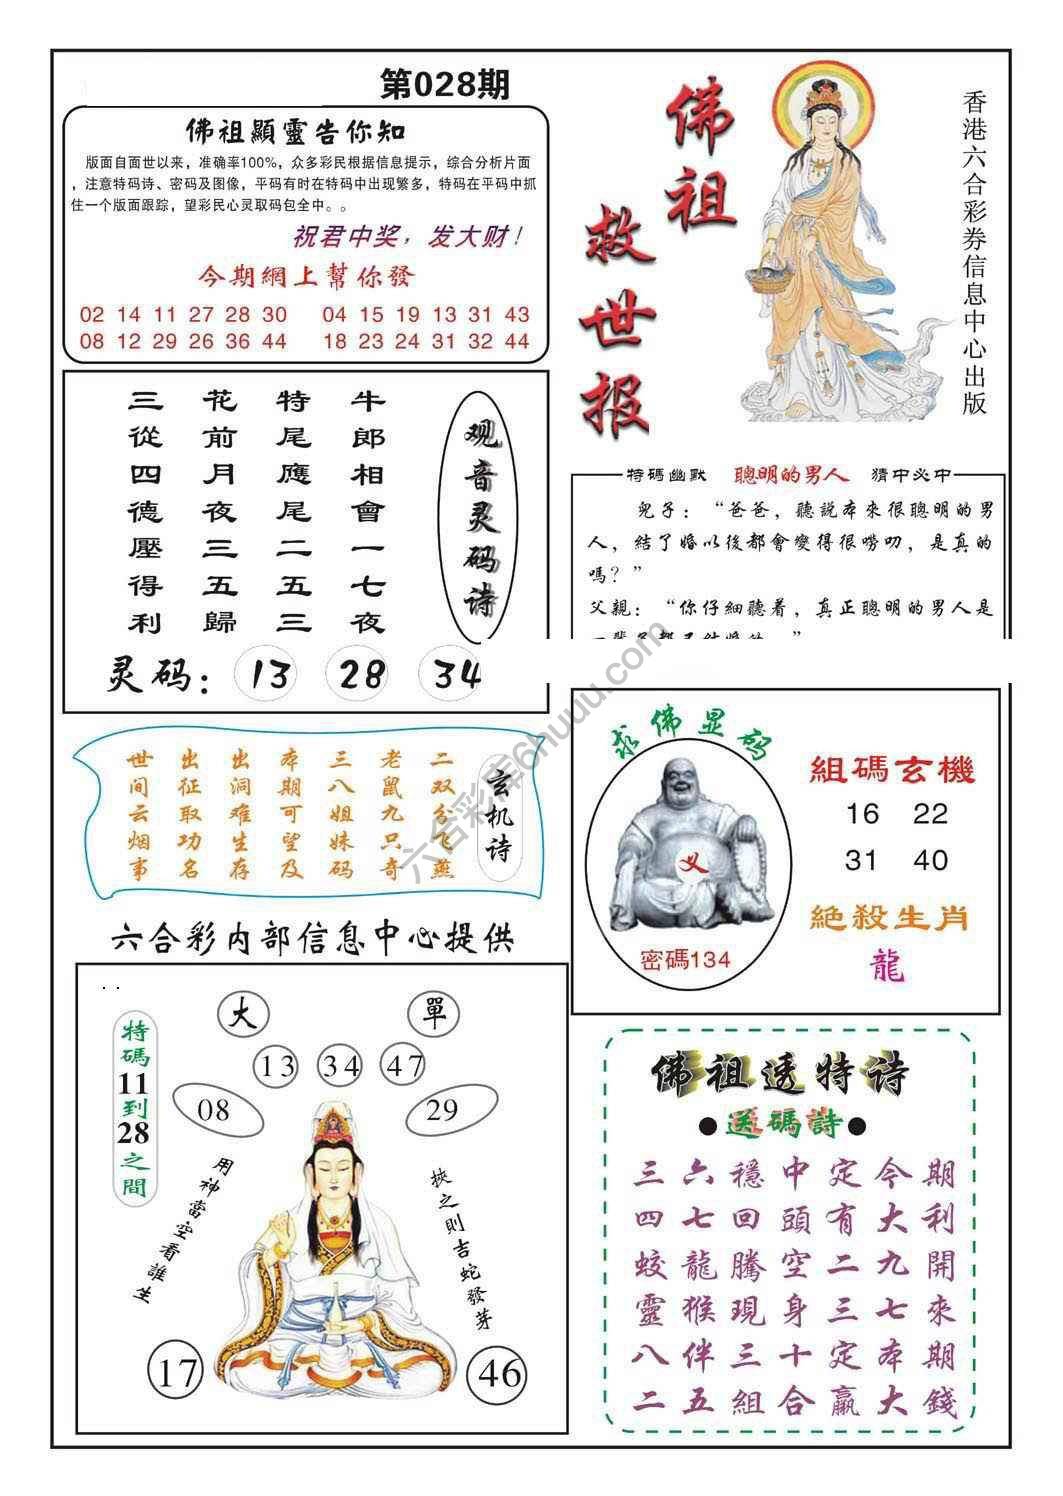 第028期
佛祖顯靈告你知
版面自面世以来，准确率100%，众多彩民根据信息提示，综合分析片面
，注意特码诗、密码及图像，平码有时在特码中出现繁多，特码在平码中抓
住一个版面跟踪，望彩民心灵取码包全中。。
祝君中奖，发大财！
今期網上幫你發
02 14 11 27 28 30 04 15 19 13 31 43
08 12 29 26 36 44 18 23 24 31 32 44
佛祖
救世报
香港六合彩券信息中心出版
观音灵码诗
牛郎相會一七夜
特尾應尾二五三
花前月夜三五歸
三從四德壓得利
灵码： 13 28 34
特碼幽默 聰明的男人 猜中必中
兒子：“爸爸，聽說本來很聰明的男
人，結了婚以後都會變得很嘮叨，是真的
嗎？”
父親：“你仔細聽着，真正聰明的男人是
玄机诗
二双分飞燕
老鼠九只奇
三八姐妹码
本期可望及
出洞难生存
出征取功名
世间云烟事
求佛显码
义
密碼134
組碼玄機
16 22
31 40
絕殺生肖
龍
六合彩内部信息中心提供
大 單
13 34 47
08 29
特碼11到28之間
用神當空看誰生
挾之則吉蛇發芽
17 46
佛祖透特诗
●送碼詩●
三六穩中定今期
四七回頭有大利
蛟龍騰空二九開
靈猴現身三七來
八伴三十定本期
二五組合贏大錢
六合彩库6huuu.com